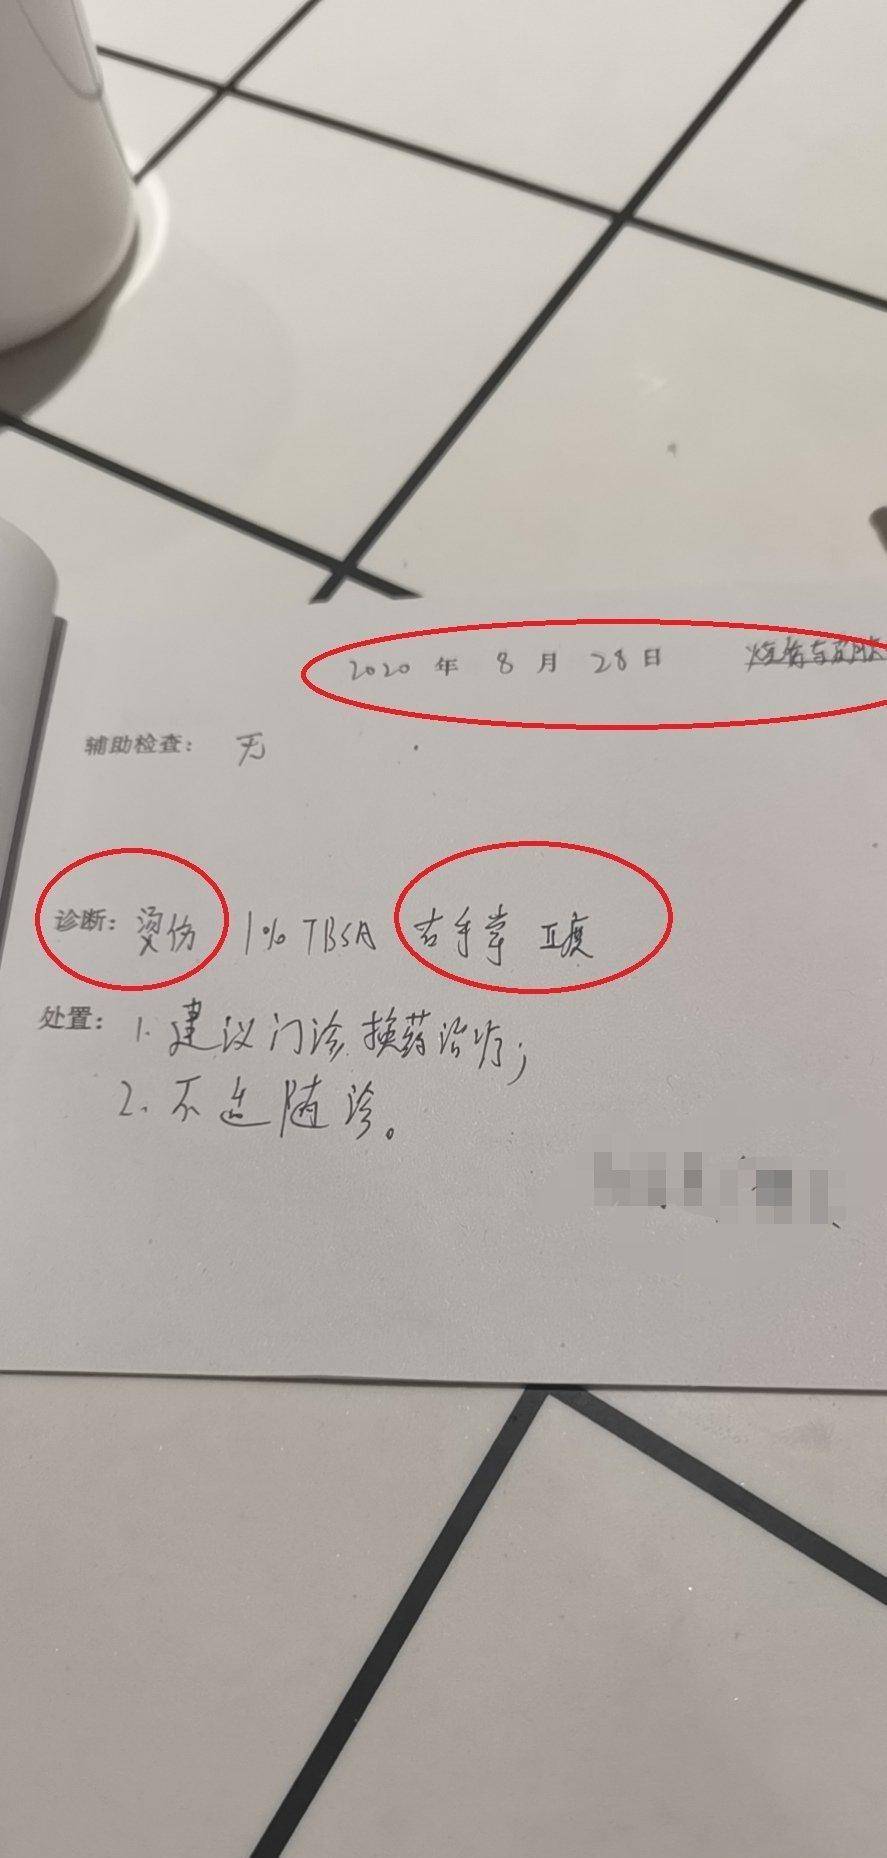 2020 年 8 月 28 日
辅助检查： 无
诊断：烫伤 1% TBSA 右手掌 II度
处置：1. 建议门诊换药治疗；
2. 不适随诊。